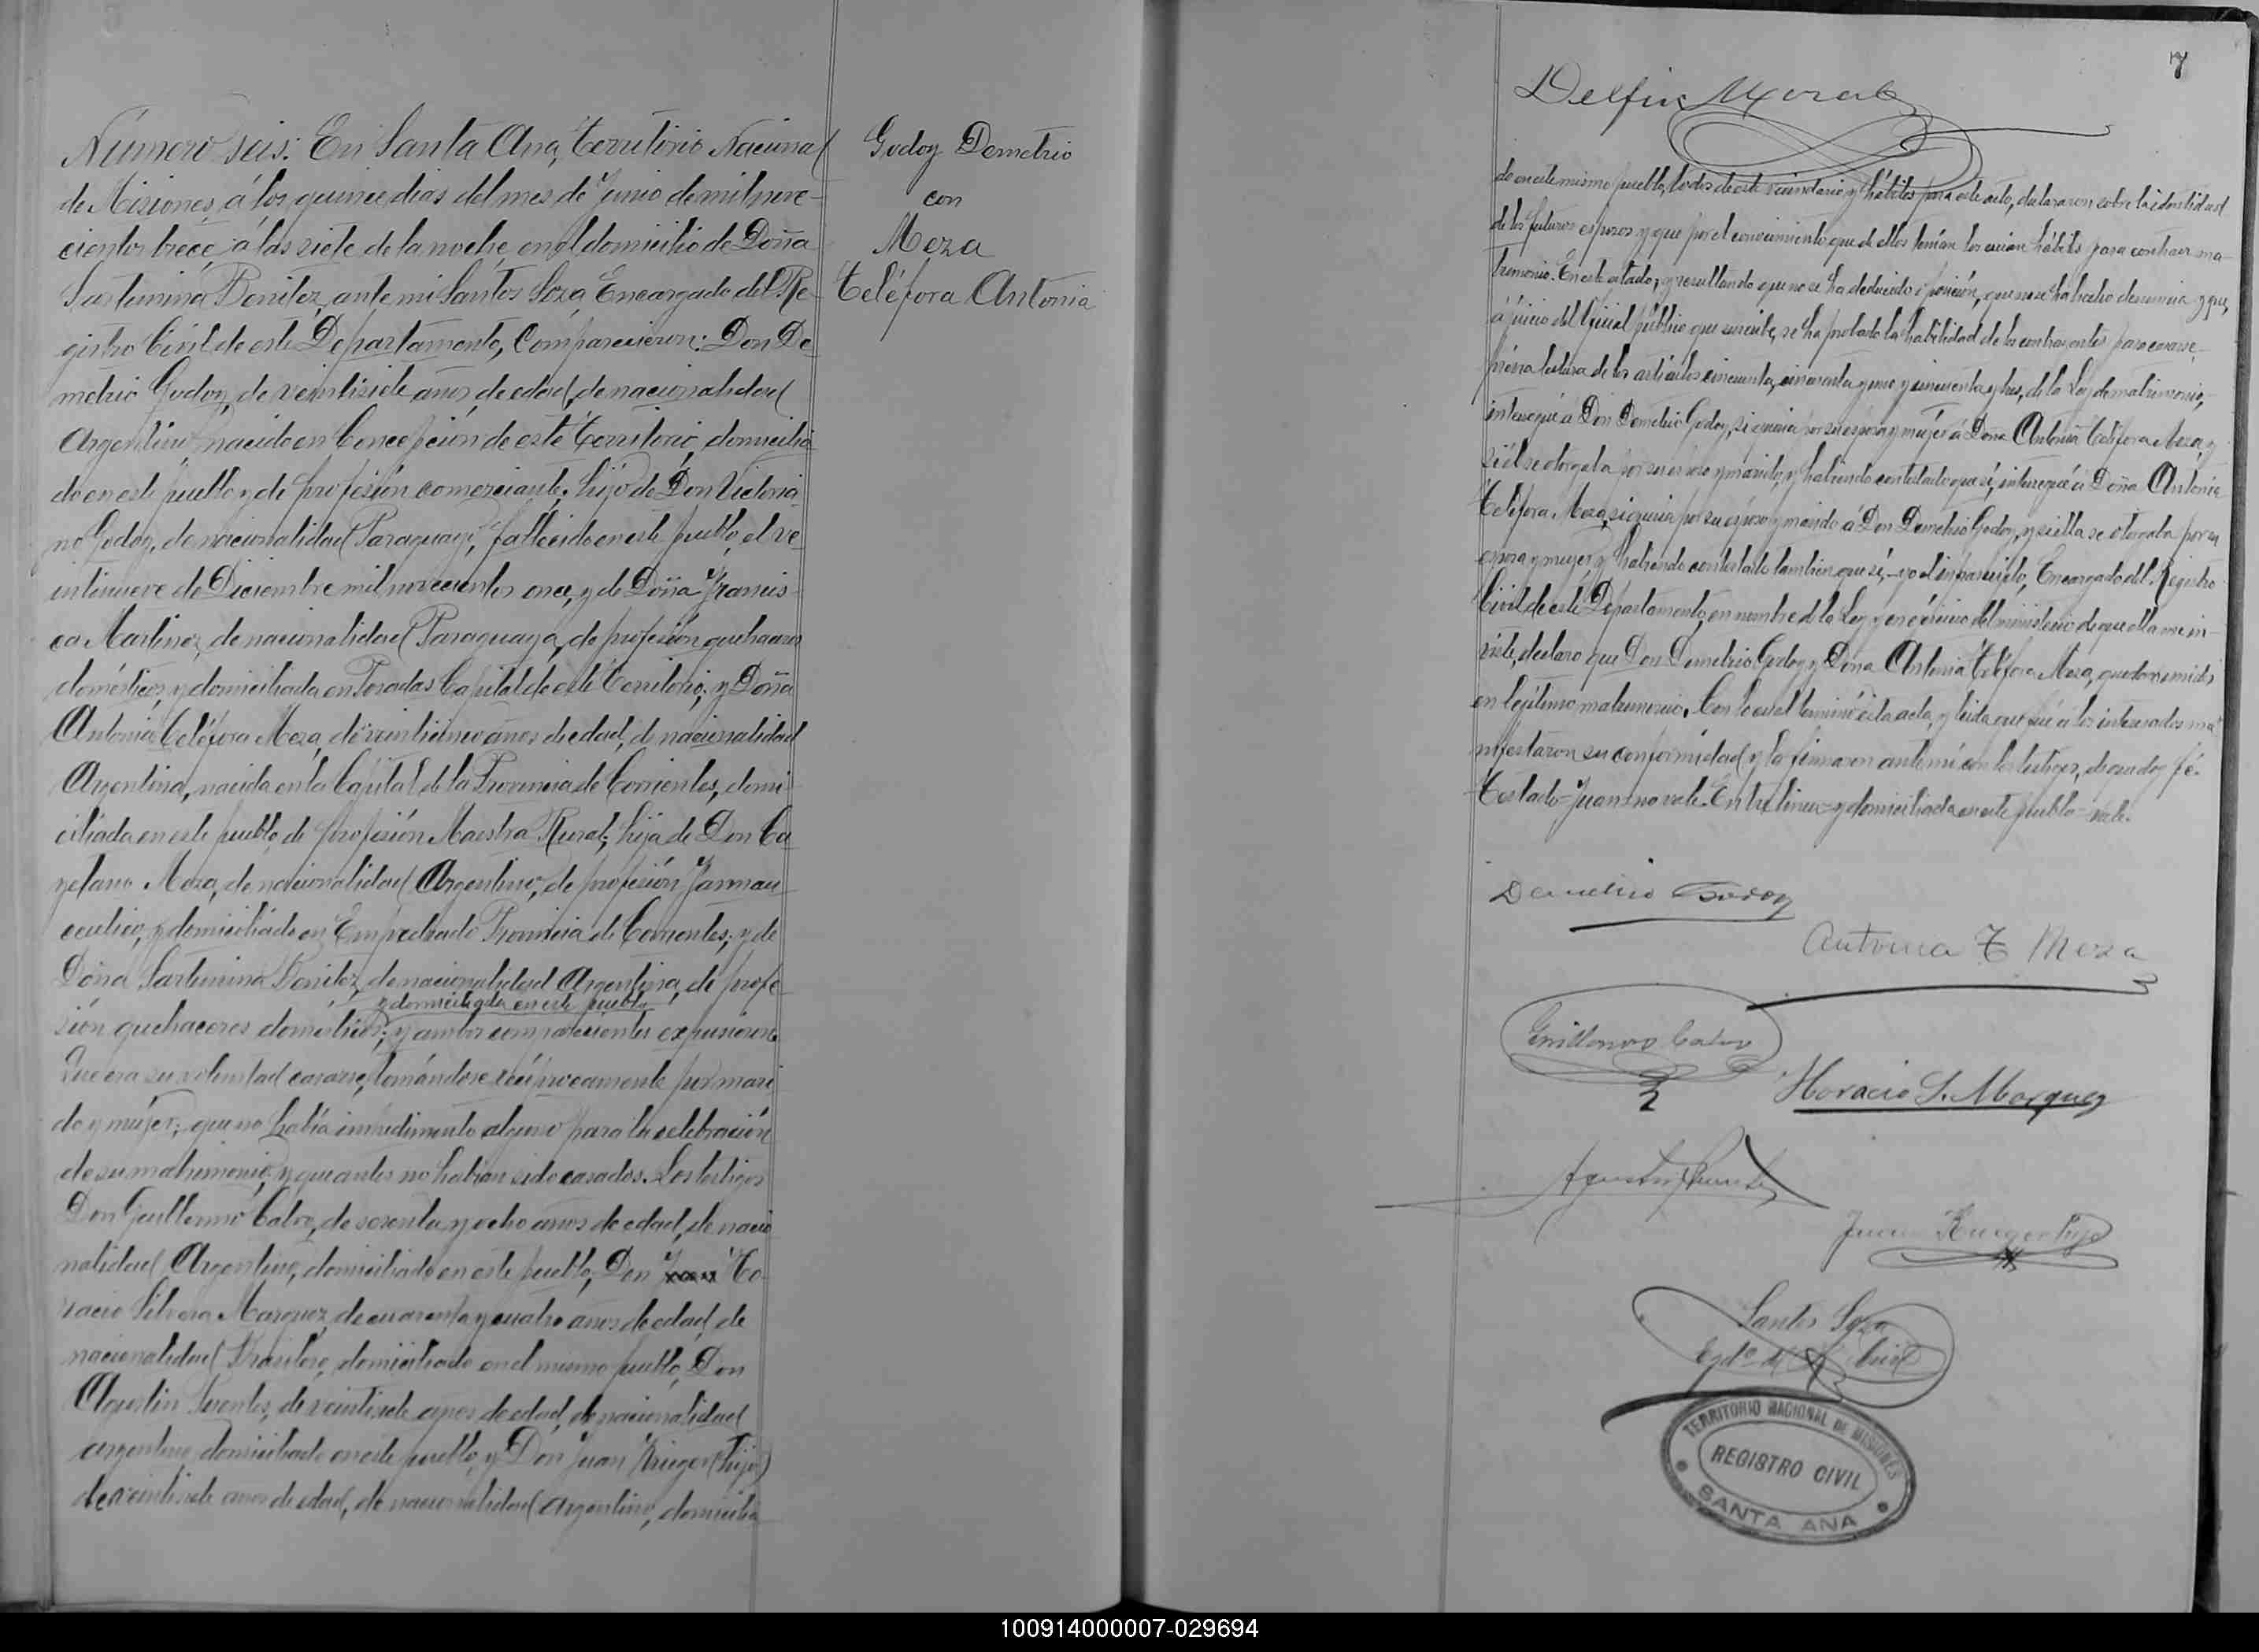 Número seis: En Santa Ana, Territorio Nacional
de Misiones, á los quince dias del mes de Junio de mil nove-
cientos trece, á las siete de la noche, en el domicilio de Doña
Saturnina Benitez, ante mi Santos Soza, Encargado del Re-
gistro Civil de este Departamento, Comparecieron: Don De-
metrio Godoy, de veintisiete años de edad, de nacionalidad
Argentino, nacido en Concepción de este Territorio, domicilia-
do en este pueblo y de profesión comerciante; hijo de Don Victoria-
no Godoy, de nacionalidad Paraguayo, fallecido en este pueblo, el ve-
intinueve de Diciembre mil novecientos once, y de Doña Francis-
ca Martinez, de nacionalidad Paraguaya, de profesión quehaceres
domésticos, y domiciliada en Posadas Capital de este Territorio; y Doña
Antonia Teléfora Meza, de veinticinco años de edad, de nacionalidad
Argentina, nacida en la Capital de la Provincia de Corrientes, domi-
ciliada en este pueblo, de profesión Maestra Rural; hija de Don Ca-
yetano Meza, de nacionalidad Argentino, de profesión Farmau-
ceutico, y domiciliado en Empedrado Provincia de Corrientes; y de
Doña Sarturnina Benitez, de nacionalidad Argentina, de profe-
y domiciliada en este pueblo
sión quehaceres domésticos; y ambos comparecientes expusieron:
Que era su voluntad casarse, tomándose recíprocamente por mari-
do y mujer; que no había impedimento alguno para la celebración
de su matrimonio, y que antes no habian sido casados. Los testigos
Don Guillermo Calvo, de sesenta y ocho años de edad, de nacio-
nalidad Argentino, domiciliado en este pueblo, Don Juan Ho-
racio Silvera Marquez, de cuarenta y cuatro años de edad, de
nacionalidad Brasilero, domiciliado en el mismo pueblo, Don
Agustin Puentes, de veintisiete años de edad, de nacionalidad
argentino, domiciliado en este pueblo, y Don Juan Krieger (hijo)
de veintisiete años de edad, de nacionalidad argentino, domicilia-
Godoy Demetrio
con
Meza
Teléfora Antonia
7
Delfin Morales
do en este mismo pueblo, todos de este vecindario y hábiles para este acto, declararon sobre la identidad
de los futuros esposos y que por el conocimiento que de ellos tenían los creían hábiles para contraer ma-
trimonio. En este estado, y resultando que no se ha deducido oposición, que no se ha hecho denuncia y que,
á juicio del Oficial público que suscribe, se ha probado la habilidad de los contrayentes para casarse,
prévia lectura de los artículos cincuenta, cincuenta y uno y cincuenta y tres, de la Ley de matrimonio,
interrogué á Don Demetrio Godoy, si queria por su esposa y mujer á Doña Antonia Teléfora Meza, y
si él se otorgaba por su esposo y marido, y habiendo contestado que sí, interrogué á Doña Antonia
Teléfora Meza, si queria por su esposo y marido á Don Demetrio Godoy, y si ella se otorgaba por su
esposa y mujer y habiendo contestado tambien que sí, yo el infrascripto, Encargado del Registro
Civil de este Departamento, en nombre de la Ley y en ejércicio del ministerio de que ella me in-
viste, declaro que Don Demetrio Godoy y Doña Antonia Teléfora Meza, quedan unidos
en legítimo matrimonio. Con lo cual terminó esta acta, y leída que fué á los interesados ma-
nifestaron su conformidad y la firmaron ante mí con los testigos, de que doy fé.
Testado= Juan= no vale. Entre lineas= y domiciliada en este pueblo= vale.
Demetrio Godoy
Antonia T Meza
Guillermo Calvo
Horacio S. Marquez
Agustin Puentes
Juan Krieger hijo
Santos Soza
Egdo del R Civil
TERRITORIO NACIONAL DE MISIONES
REGISTRO CIVIL
SANTA ANA
100914000007-029694